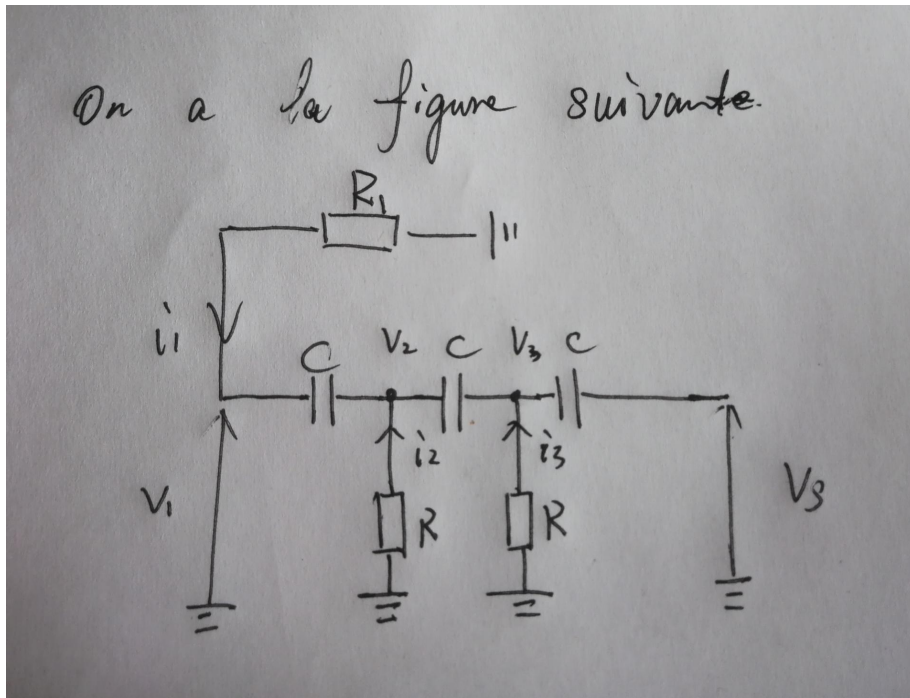 On a la figure suivante.
R₁
i₁
C V₂ C V₃ C
i₂ i₃
V₁ R R V₃